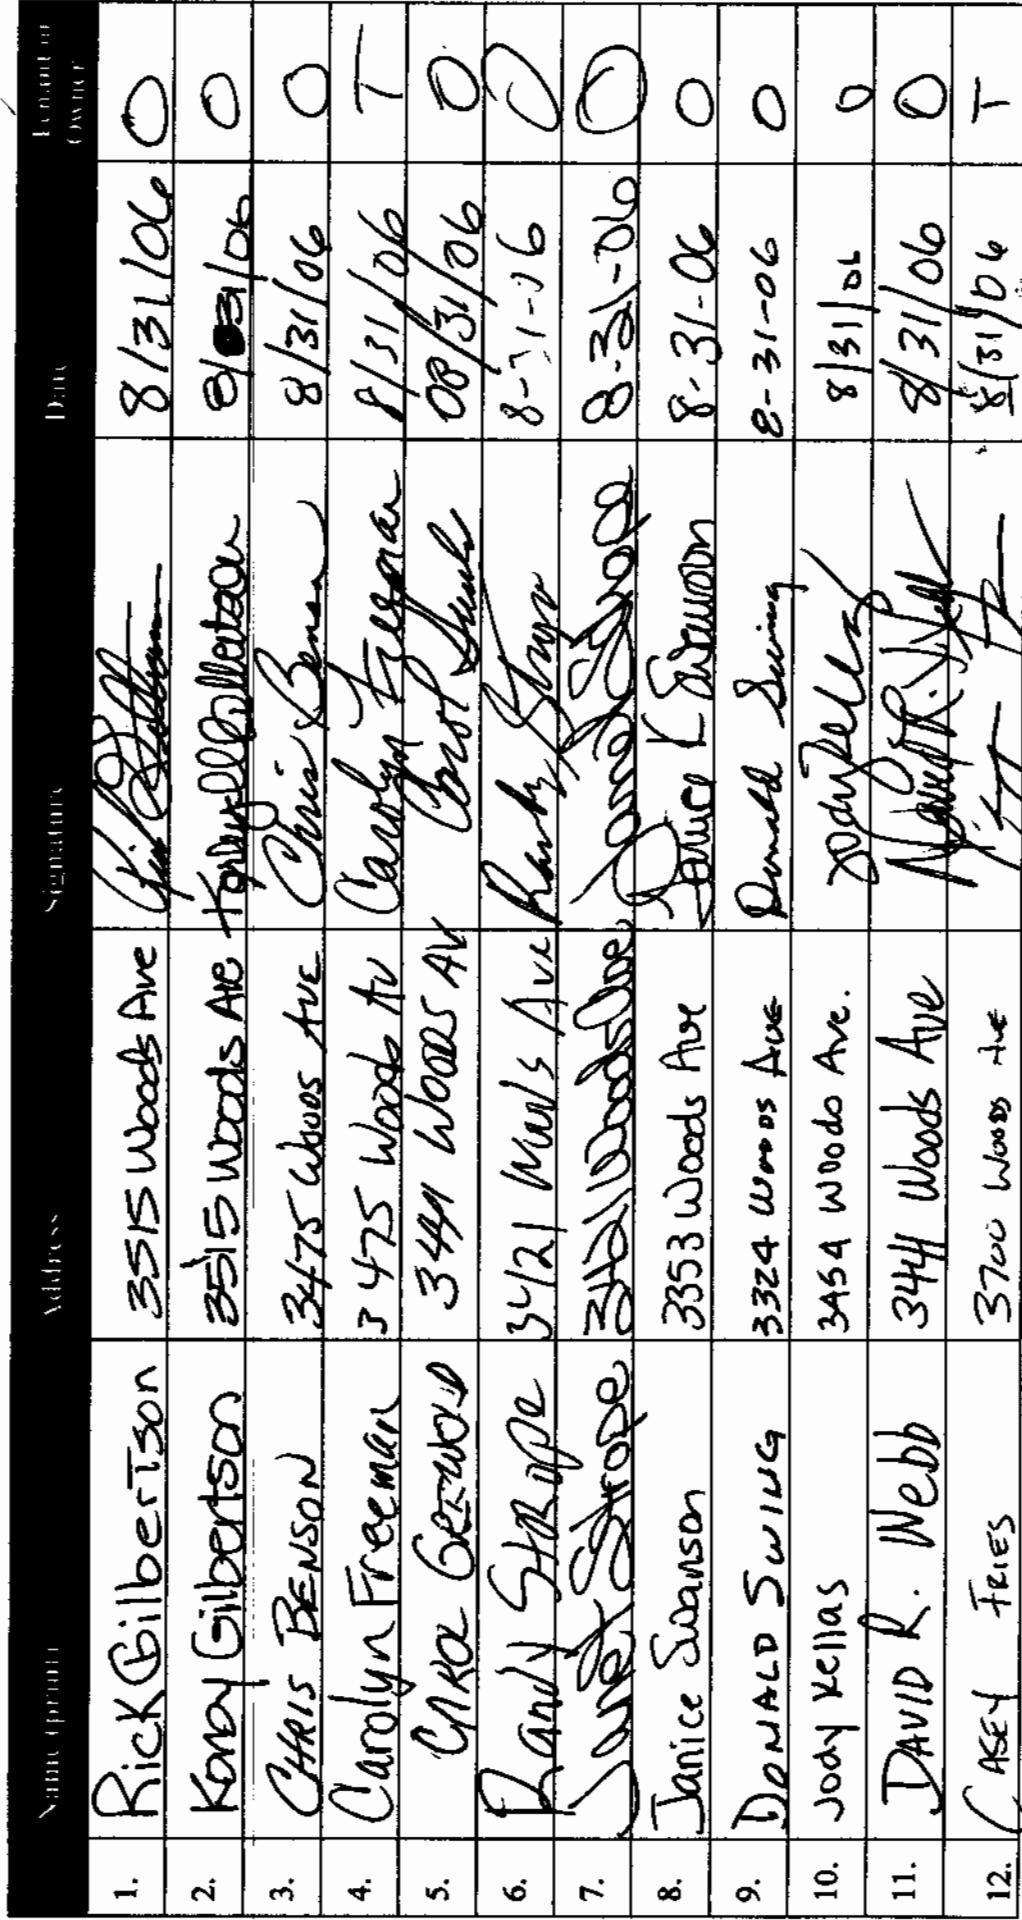 Name (print) Address Signature Date Tenant or Owner
1. Rick Gilbertson 3515 Woods Ave 8/31/06 O
2. Gilbertson 3515 Woods Ave 8/31/06 O
3. CHRIS BENSON 3475 WOODS AVE Chris Benson 8/31/06 O
4. Carolyn Freeman 3475 Woods Av Carolyn Freeman 8/31/06 T
5. CAROL 3441 WOODS AV Carol 08/31/06 O
6. Randy STROPE 3421 Woods Ave Randy Strope 8-31-06 O
7. Janet Strope 3421 Woods Ave Janet Strope 8-31-06 O
8. Janice Swanson 3353 Woods Ave Janice K Swanson 8-31-06 O
9. DONALD SWING 3324 WOODS AVE Donald Swing 8-31-06 O
10. Jody Kellas 3454 Woods Ave. Jody Kellas 8/31/06 O
11. DAVID R. Webb 3441 Woods Ave David R. Webb 8/31/06 O
12. CASEY FRIES 3700 WOODS AVE 8/31/06 T